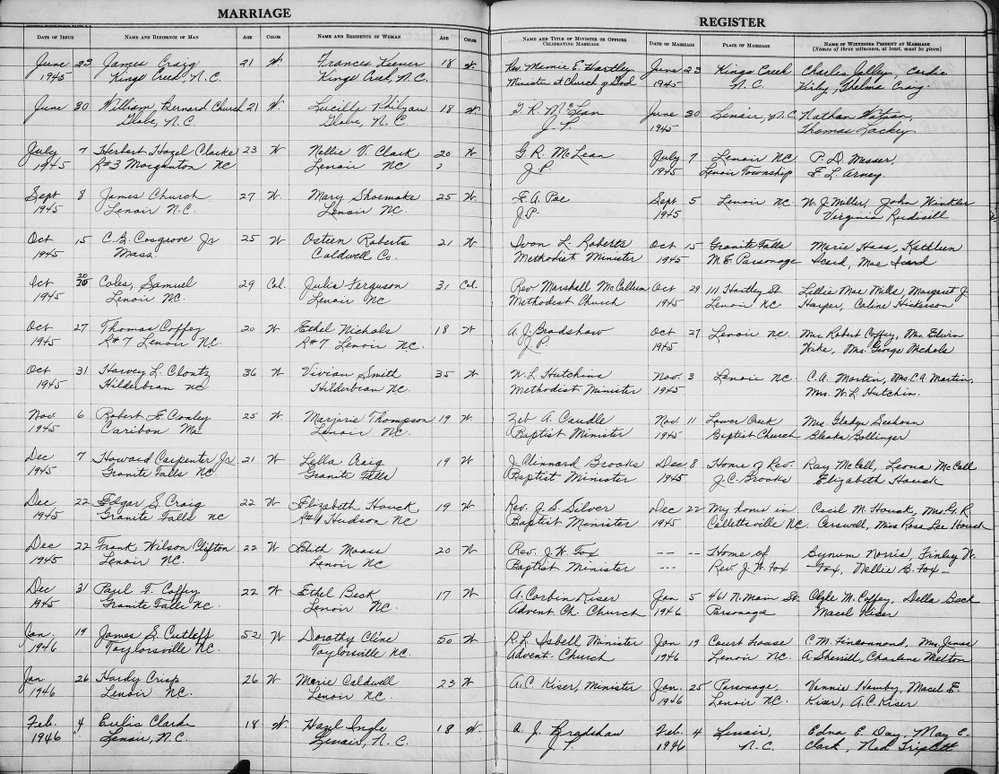 MARRIAGE
REGISTER
DATE OF ISSUE NAME AND RESIDENCE OF MAN AGE COLOR NAME AND RESIDENCE OF WOMAN AGE COLOR NAME AND TITLE OF MINISTER OR OFFICER CELEBRATING MARRIAGE DATE OF MARRIAGE PLACE OF MARRIAGE NAME OF WITNESSES PRESENT AT MARRIAGE
(Names of three witnesses, at least, must be given)
June 23 James Craig 21 W. Frances Keener 18 W. Rev. Mamie E. Hartley June 23 Kings Creek Charles Colley,
1945 Kings Creek, N.C. Kings Creek, N.C. Minister of Church of God 1945 N.C. Kirby, Thelma Craig.
June 30 William Bernard Church 21 W. Lucille 18 W. G. R. McLean June 30 Lenoir, N.C. Nathan Watson,
1945 Globe, N.C. Globe, N.C. J.P. 1945 Thomas Lackey
July 7 Herbert Hazel Clarke 23 W Nellie V. Clark 20 W G R McLean July 7 Lenoir NC P. D. Messer,
1945 R#3 Morganton NC Lenoir NC J.P. 1945 Lenoir Township F. L. Arney.
Sept 8 James Church 27 W. Mary Shoemake 25 W. F. A. Poe Sept 5 Lenoir NC W. J. Miller, John Winkler
1945 Lenoir N.C. Lenoir NC. J.P. 1945 Virginia Rudisill
Oct 15 C. G. Cosgrove Jr 25 W Osteen Roberts 21 W Ivon L. Roberts Oct 15 Granite Falls Marie Hass, Kathleen
1945 Mass. Caldwell Co. Methodist Minister 1945 M.E. Parsonage Icard, Mae Icard
Oct 20 Coles, Samuel 29 Col. Julie Ferguson 31 Col. Rev. Marshall McCallum Oct 29 111 Hartley St Lillie Mae Wilks, Margaret J.
1945 Lenoir NC. Lenoir NC Methodist Church 1945 Lenoir NC Harper, Caline Hickerson
Oct 27 Thomas Coffey 20 W Ethel Nichols 18 W A. J. Bradshaw Oct 27 Lenoir NC. Mrs Robert Coffey, Mrs Edwin
1945 R#7 Lenoir NC R#7 Lenoir NC. J.P. 1945 Wike, Mrs. George Nichols
Oct 31 Harvey L. Clontz 36 W Vivian Smith 35 W W. L. Hutchins Nov. 3 Lenoir NC. C. A. Martin, Mrs C.A. Martin,
1945 Hilderbran NC Hilderbran NC. Methodist Minister 1945 Mrs. W. L. Hutchin.
Nov. 6 Robert F. Conley 25 W Marjorie Thompson 19 W Zeb A. Caudle Nov 11 Lower Creek Mrs. Gladys
1945 Caribou Me Lenoir NC. Baptist Minister 1945 Baptist Church Bollinger
Dec 7 Howard Carpenter Jr 21 W Lella Craig 19 W J. Clinnard Brooks Dec 8 Home of Rev. Ray McCall, Leona McCall
1945 Granite Falls NC Granite Falls Baptist Minister 1945 J.C. Brooks Elizabeth Houck
Dec 22 Edgar S. Craig 22 W Elizabeth Houck 19 W Rev. J. S. Silver Dec 22 My home in Cecil M. Houck, Mrs. G. R.
1945 Granite Falls NC R#1 Hudson NC Baptist Minister 1945 Collettsville NC Carswell, Miss Rosa Lee Houck
Dec 22 Frank Wilson Clifton 22 W Edith Moose 20 W Rev. J. W. Fox -- -- Home of Gynum Norris, Finley W.
1945 Lenoir NC. Lenoir NC Baptist Minister --- Rev. J. W. Fox Fox, Nellie B. Fox -
Dec 31 Paul T. Coffey 22 W Ethel Beck 17 W A. Corbin Kiser Jan 5 461 N. Main St. Clyde M. Coffey, Della Beck
1945 Granite Falls NC. Lenoir NC. Advent Ch. Church 1946 Parsonage Macel Kiser
Jan. 19 James S. Cutleff 52 W Dorothy Cline 50 W. R. L. Isbell, Minister Jan 19 Court House C. M. Fincannond, Mrs
1946 Taylorsville N.C. Taylorsville NC. Advent-Church 1946 Lenoir NC. A. Sherrill, Charlene Melton
Jan 26 Hardy Crisp 26 W Marie Caldwell 23 W A. C. Kiser, Minister Jan. 25 Parsonage, Vennie Hamby, Macel E.
1946 Lenoir N.C. Lenoir NC. 1946 Lenoir NC. Kiser, A.C. Kiser
Feb. 4 Eulis Clark 18 W. Hazel Ingle 18 W. A. J. Bradshaw Feb. 4 Lenoir, Edna E. Day, May E.
1946 Lenoir, N.C. Lenoir, N.C. J.P. 1946 N.C. Clark, Ned Triplett